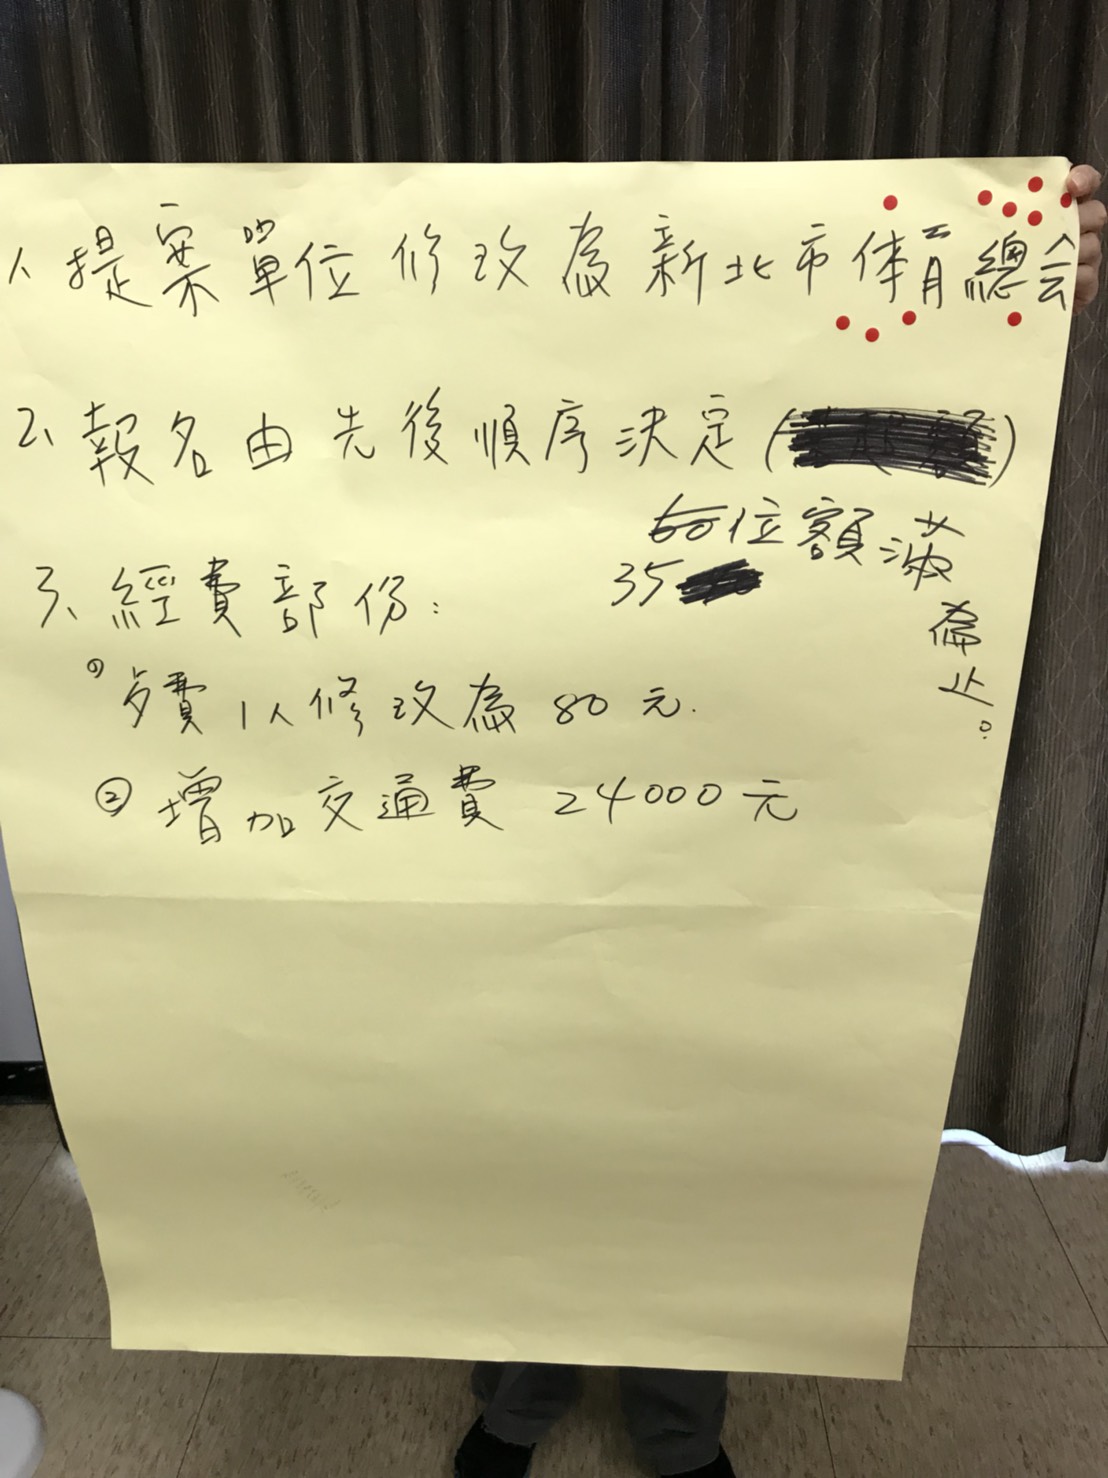 1、提案單位修改為新北市体育總会
2、報名由先後順序決定()
60位額滿為止。
35
3、經費部份:
① 費1人修改為80元.
② 增加交通費24000元